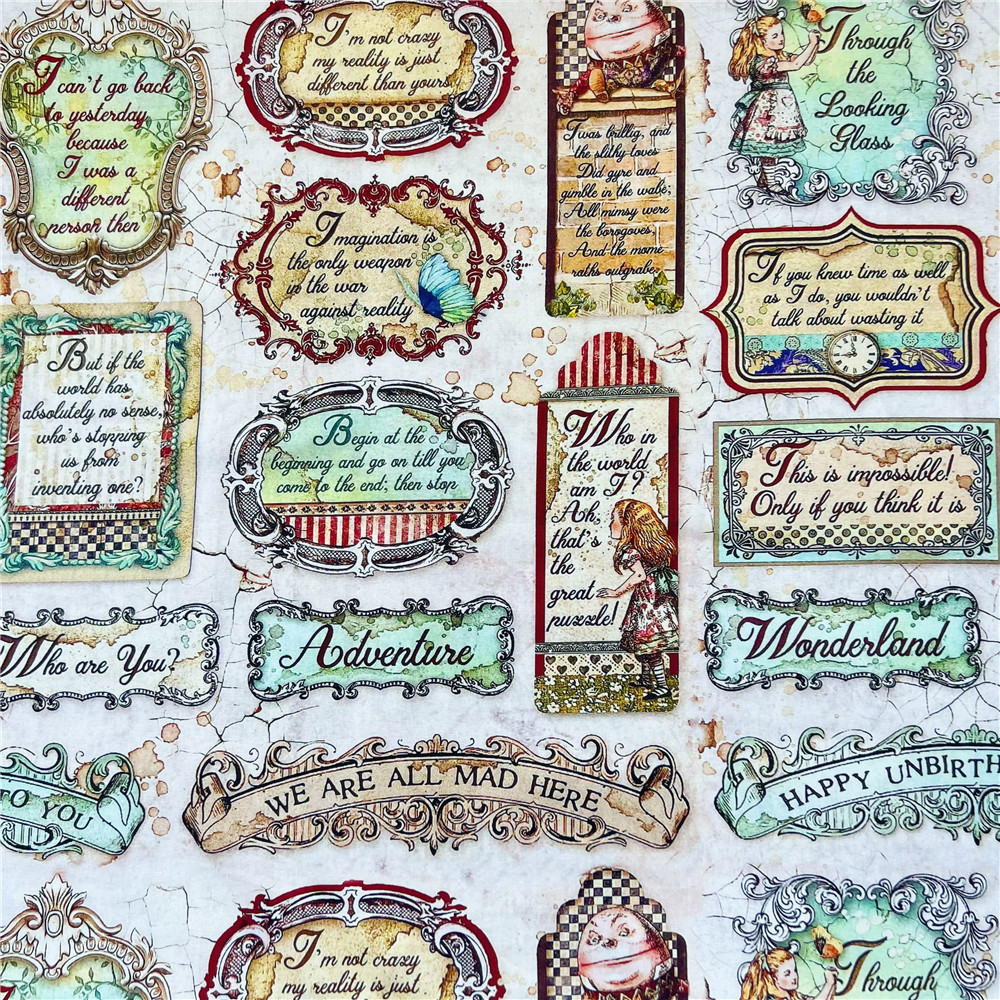 I can't go back
to yesterday
because
I was a
different
person then
I'm not crazy
my reality is just
different than yours
Twas brillig, and
the slithy toves
Did gyre and
gimble in the wabe;
All mimsy were
the borogoves,
And the mome
raths outgrabe.
Through
the
Looking
Glass
Imagination is
the only weapon
in the war
against reality
If you knew time as well
as I do, you wouldn't
talk about wasting it
But if the
world has
absolutely no sense,
who's stopping
us from
inventing one?
Begin at the
beginning and go on till you
come to the end; then stop
Who in
the world
am I?
Ah,
that's
the
great
puzzle!
This is impossible!
Only if you think it is
Who are You?
Adventure
Wonderland
TO YOU
WE ARE ALL MAD HERE
HAPPY UNBIRTH
I'm not crazy
my reality is just
Through